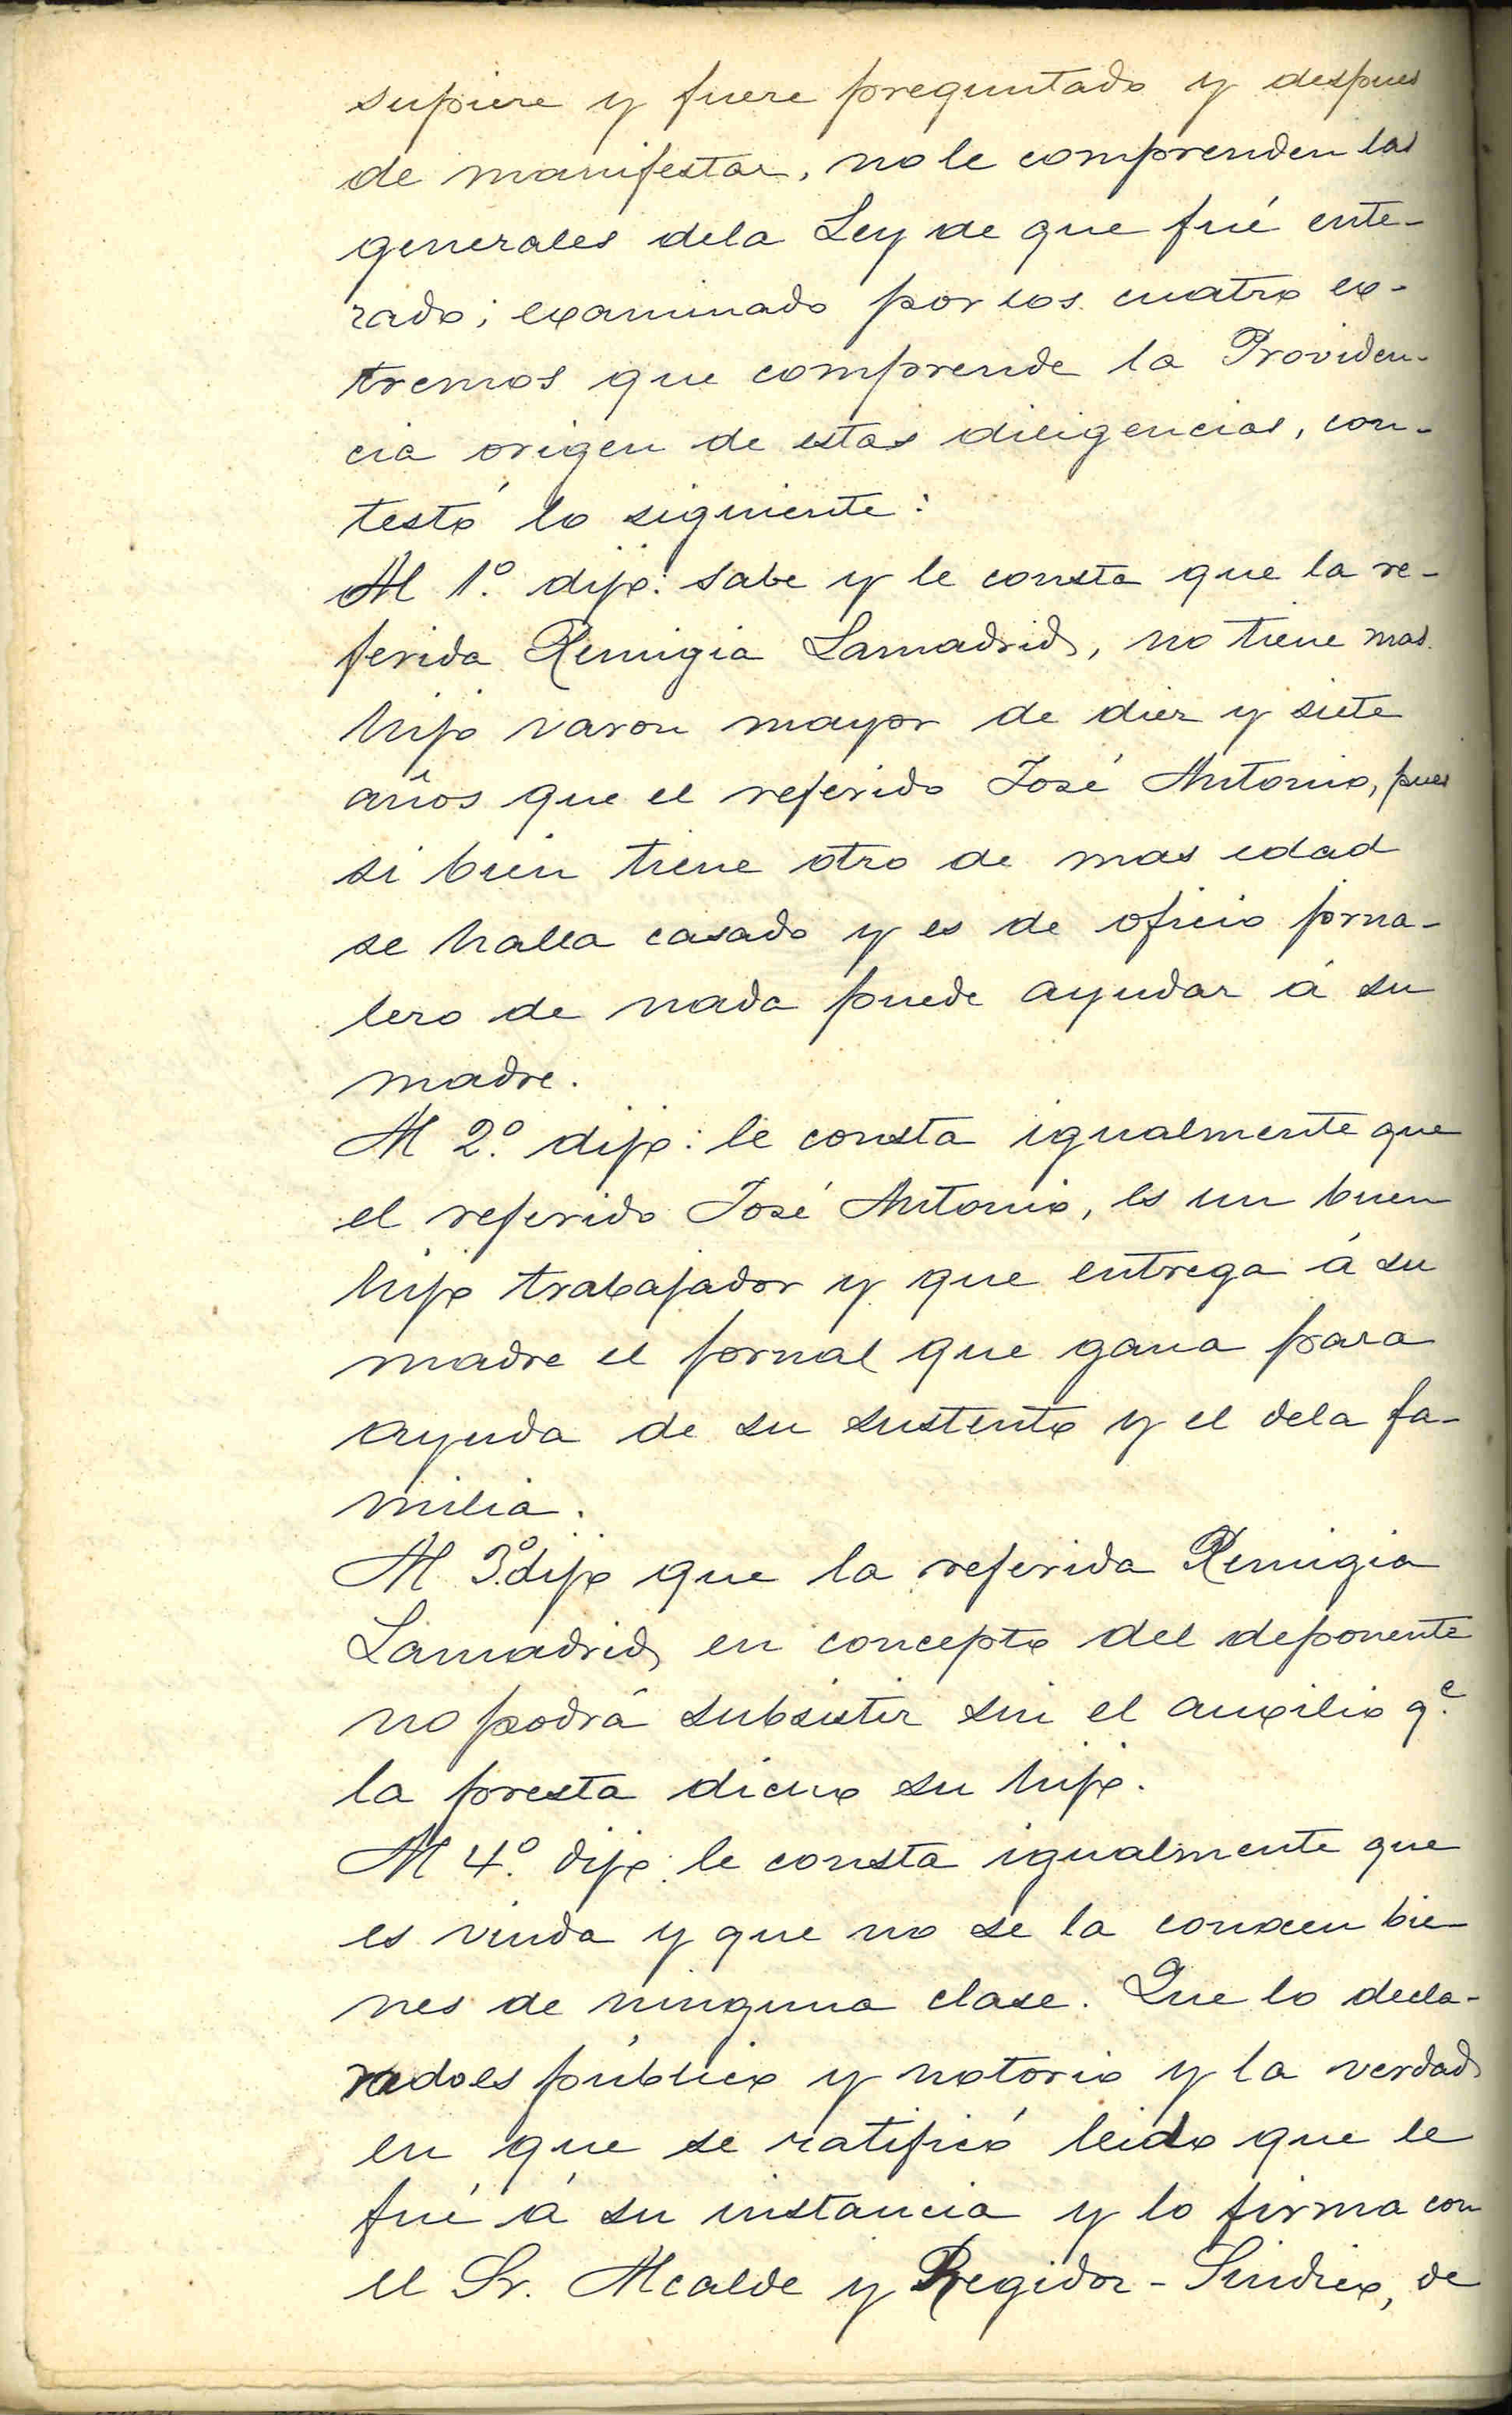 supiere y fuere preguntado y despues
de manifestar, no le comprenden las
generales dela Ley de que fué ente-
rado; examinado por los cuatro ex-
tremos que comprende la Providen-
cia origen de estas diligencias, con-
testó lo siguiente:
Al 1º. dijo: sabe y le consta que la re-
ferida Remigia Lamadrid, no tiene mas
hijo varon mayor de diez y siete
años que el referido José Antonio, pues
si bien tiene otro de mas edad
se halla casado y es de oficio jorna-
lero de nada puede ayudar á su
madre.
Al 2º. dijo: le consta igualmente que
el referido José Antonio, es un buen
hijo trabajador y que entrega á su
madre el jornal que gana para
ayuda de su sustento y el dela fa-
milia.
Al 3º. dijo que la referida Remigia
Lamadrid en concepto del deponente
no podrá subsistir sin el auxilio q.e
la presta dicho su hijo.
Al 4º. dijo: le consta igualmente que
es viuda y que no se la conocen bie-
nes de ninguna clase. Que lo decla-
rado es público y notorio y la verdad
en que se ratificó leido que le
fué á su instancia y lo firma con
el Sr. Alcalde y Regidor-Sindico, de